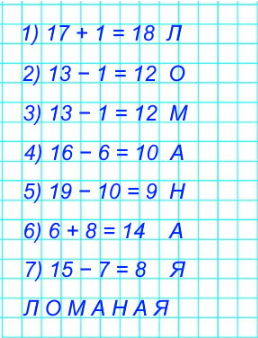 1) 17 + 1 = 18 Л
2) 13 − 1 = 12 О
3) 13 − 1 = 12 М
4) 16 − 6 = 10 А
5) 19 − 10 = 9 Н
6) 6 + 8 = 14 А
7) 15 − 7 = 8 Я
Л О М А Н А Я